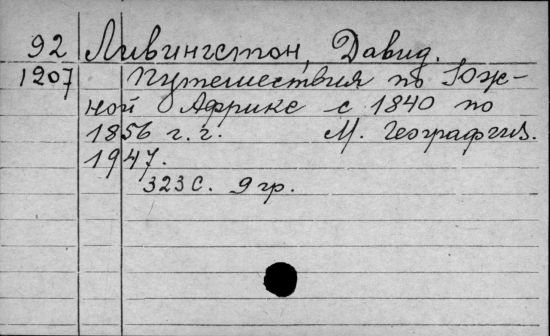 92 Ливингстон, Давид.
1207 Путешествия по Юж-
ной Африке с 1840 по
1856 г.г. М. Географгиз.
1947.
323 с. 9 гр.